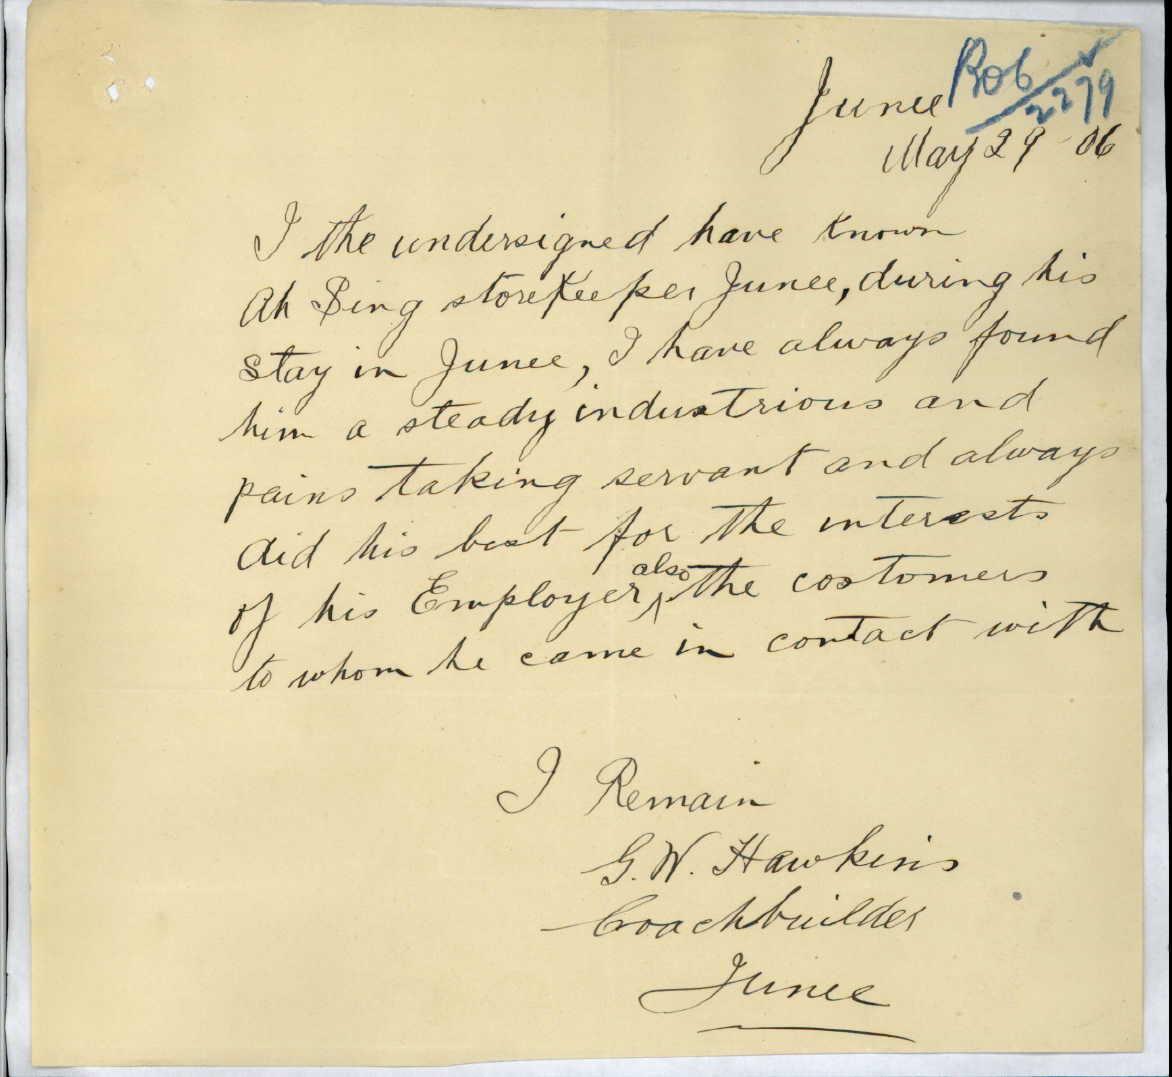 Junee
Ro6/2279
May 29 - 06
I the undersigned have known
Ah Sing storekeeper Junee, during his
stay in Junee, I have always found
him a steady industrious and
pains taking servant and always
did his best for the interests
of his Employer ^also the costomers
to whom he came in contact with
I Remain
G. W. Hawkins
Coachbuilder
Junee